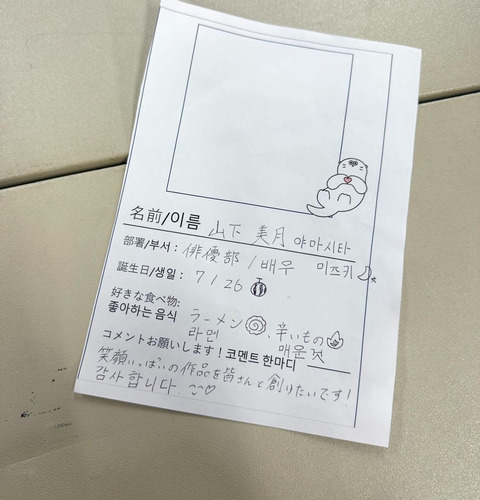 名前/이름 山下 美月 야마시타 미즈키
部署/부서 : 俳優部 / 배우
誕生日/생일 : 7 / 26
好きな食べ物:
좋아하는 음식 ラーメン 、辛いもの
라면 매운 것
コメントお願いします!코멘트 한마디
笑顔いっぱいの作品を皆さんと創りたいです!
감사합니다